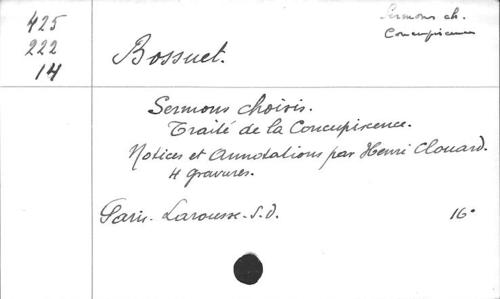 425
222
14
Sermons ch.
Concupiscence
Bossuet.
Sermons choisis.
Traité de la Concupiscence.
Notices et Annotations par Henri Clouard.
4 gravures.
Paris. Larousse. S.d. 16°